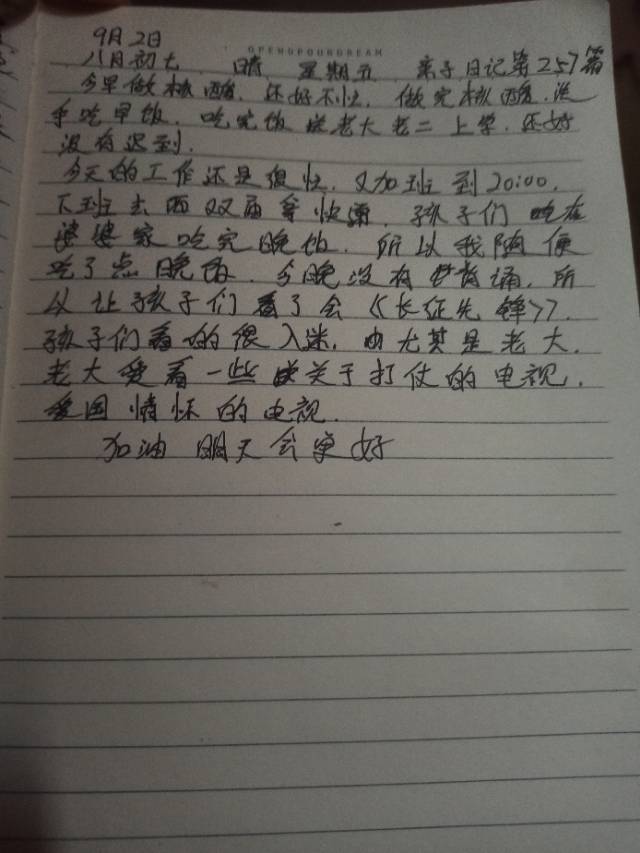 9月2日
OPENDPOURDREAM
八月初七 晴 星期五 亲子日记第257篇
今早做核酸,还好不忙,做完核酸,洗
手吃早饭,吃完饭送老大老二上学,还好
没有迟到.
今天的工作还是很忙,又加班到20:00,
下班去西双庙拿快递,孩子们晚在
婆婆家吃完晚饭,所以我随便
吃了点晚饭,今晚没有背诵,所
以让孩子们看了会《长征先锋》,
孩子们看的很入迷,尤其是老大,
老大爱看一些关于打仗的电视,
爱国情怀的电视.
加油 明天会更好